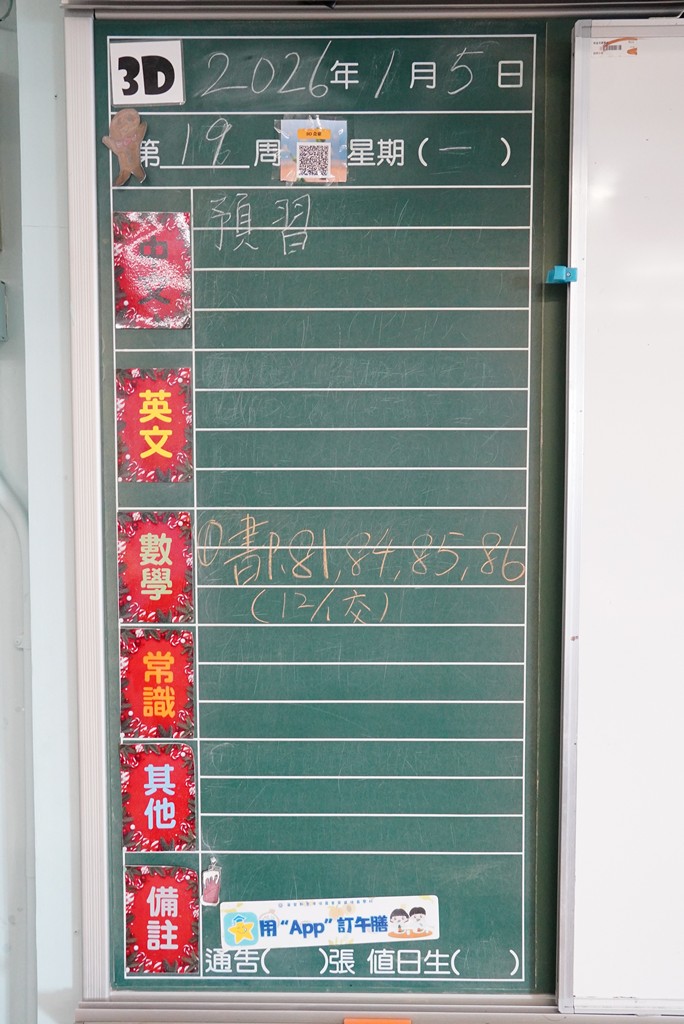 3D 2026年1月5日
第19周 星期(一)
中文 預習
英文
數學 ①書P.81, 84, 85, 86
(12/1交)
常識
其他
備註
用“App”訂午膳
通告( )張 值日生( )